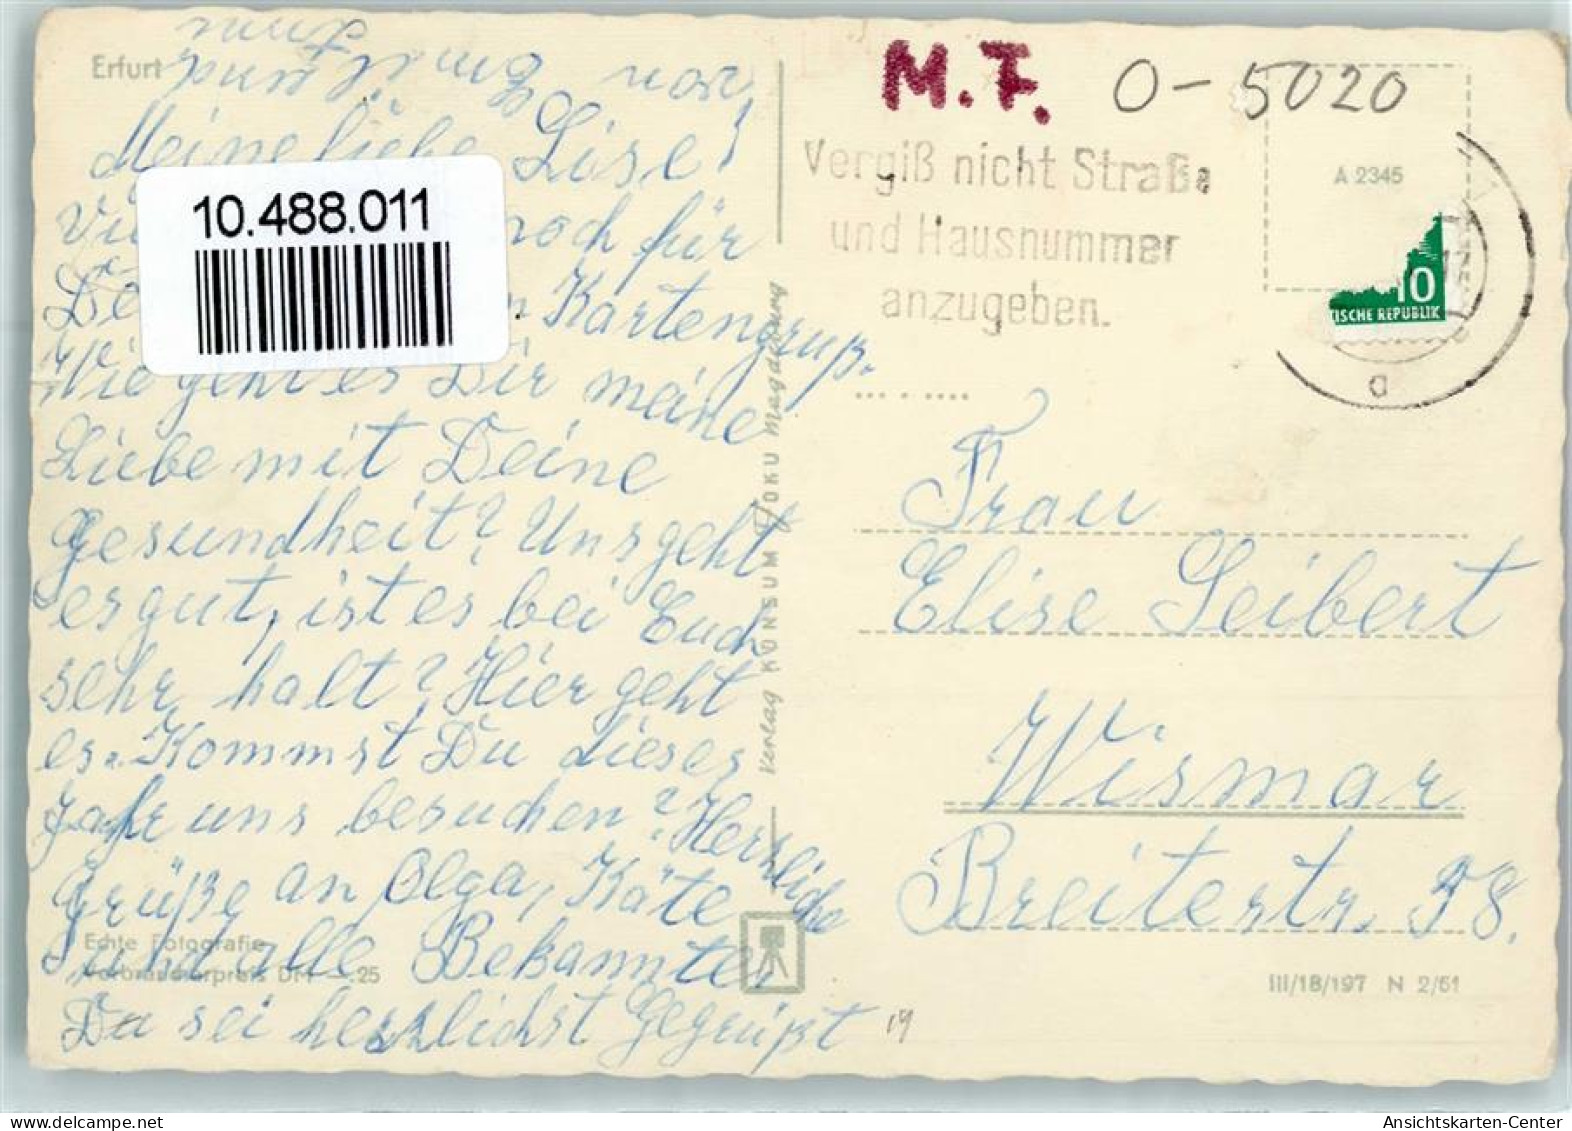 Erfurt
Meine liebe Lise!
noch für
Kartengruß.
Wie geht es Dir meine
Liebe mit Deine
Gesundheit? Uns geht
es gut, ist es bei Euch
sehr kalt? Hier geht
es. Kommst Du dieses
Jahr uns besuchen? Herzliche
Grüße an Olga, Käte
und alle Bekannten
Du sei herzlichst Gegrüßt
von
und
10.488.011
Echte Fotografie
Verbraucherpreis DM —.25
Verlag KONSUM FOKU Magdeburg
M.F.
O-5020
Vergiß nicht Straße
und Hausnummer
anzugeben.
A 2345
10
TISCHE REPUBLIK
Frau
Elise Seibert
Wismar
Breitestr. 58.
III/18/197 N 2/61
19
Ansichtskarten-Center